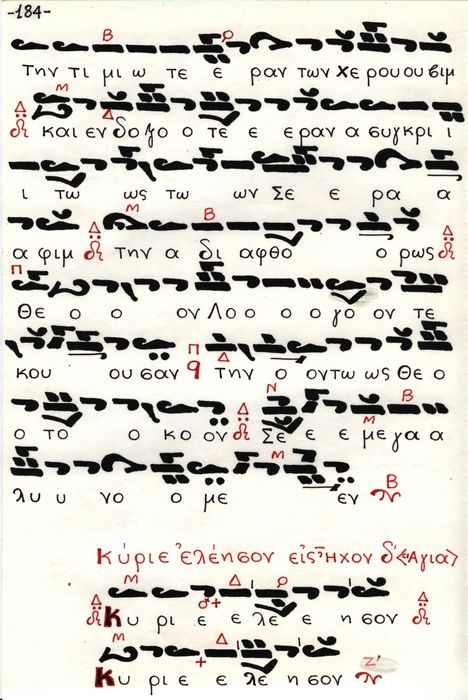 -184-
Την τι μι ω τε ε ραν των χε ρου ου βιμ
και εν δο ξο ο τε ε ε ραν α συγκρι ι
ι τω ως τω ων Σε ε ρα α
α φιμ την α δι αφθο ο ρως
Θε ο ο ον Λο ο ο ο γο ον τε
κου ου σαν την ο οντω ως Θε ο
ο το ο κο ον Σε ε ε με γα α
λυ υ νο ο με εν
Κύριε ἐλέησον εἰς Ἦχον δ' «Αγια»
Κυ ρι ε ε λε ε η σον
Κυ ρι ε ε λε η σον